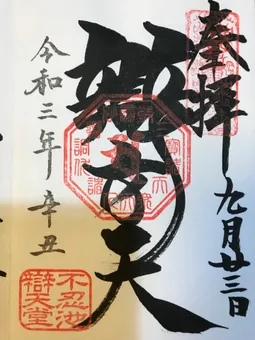 奉拝
九月廿三日
辯才天
令和三年辛丑
不忍池
辯天堂